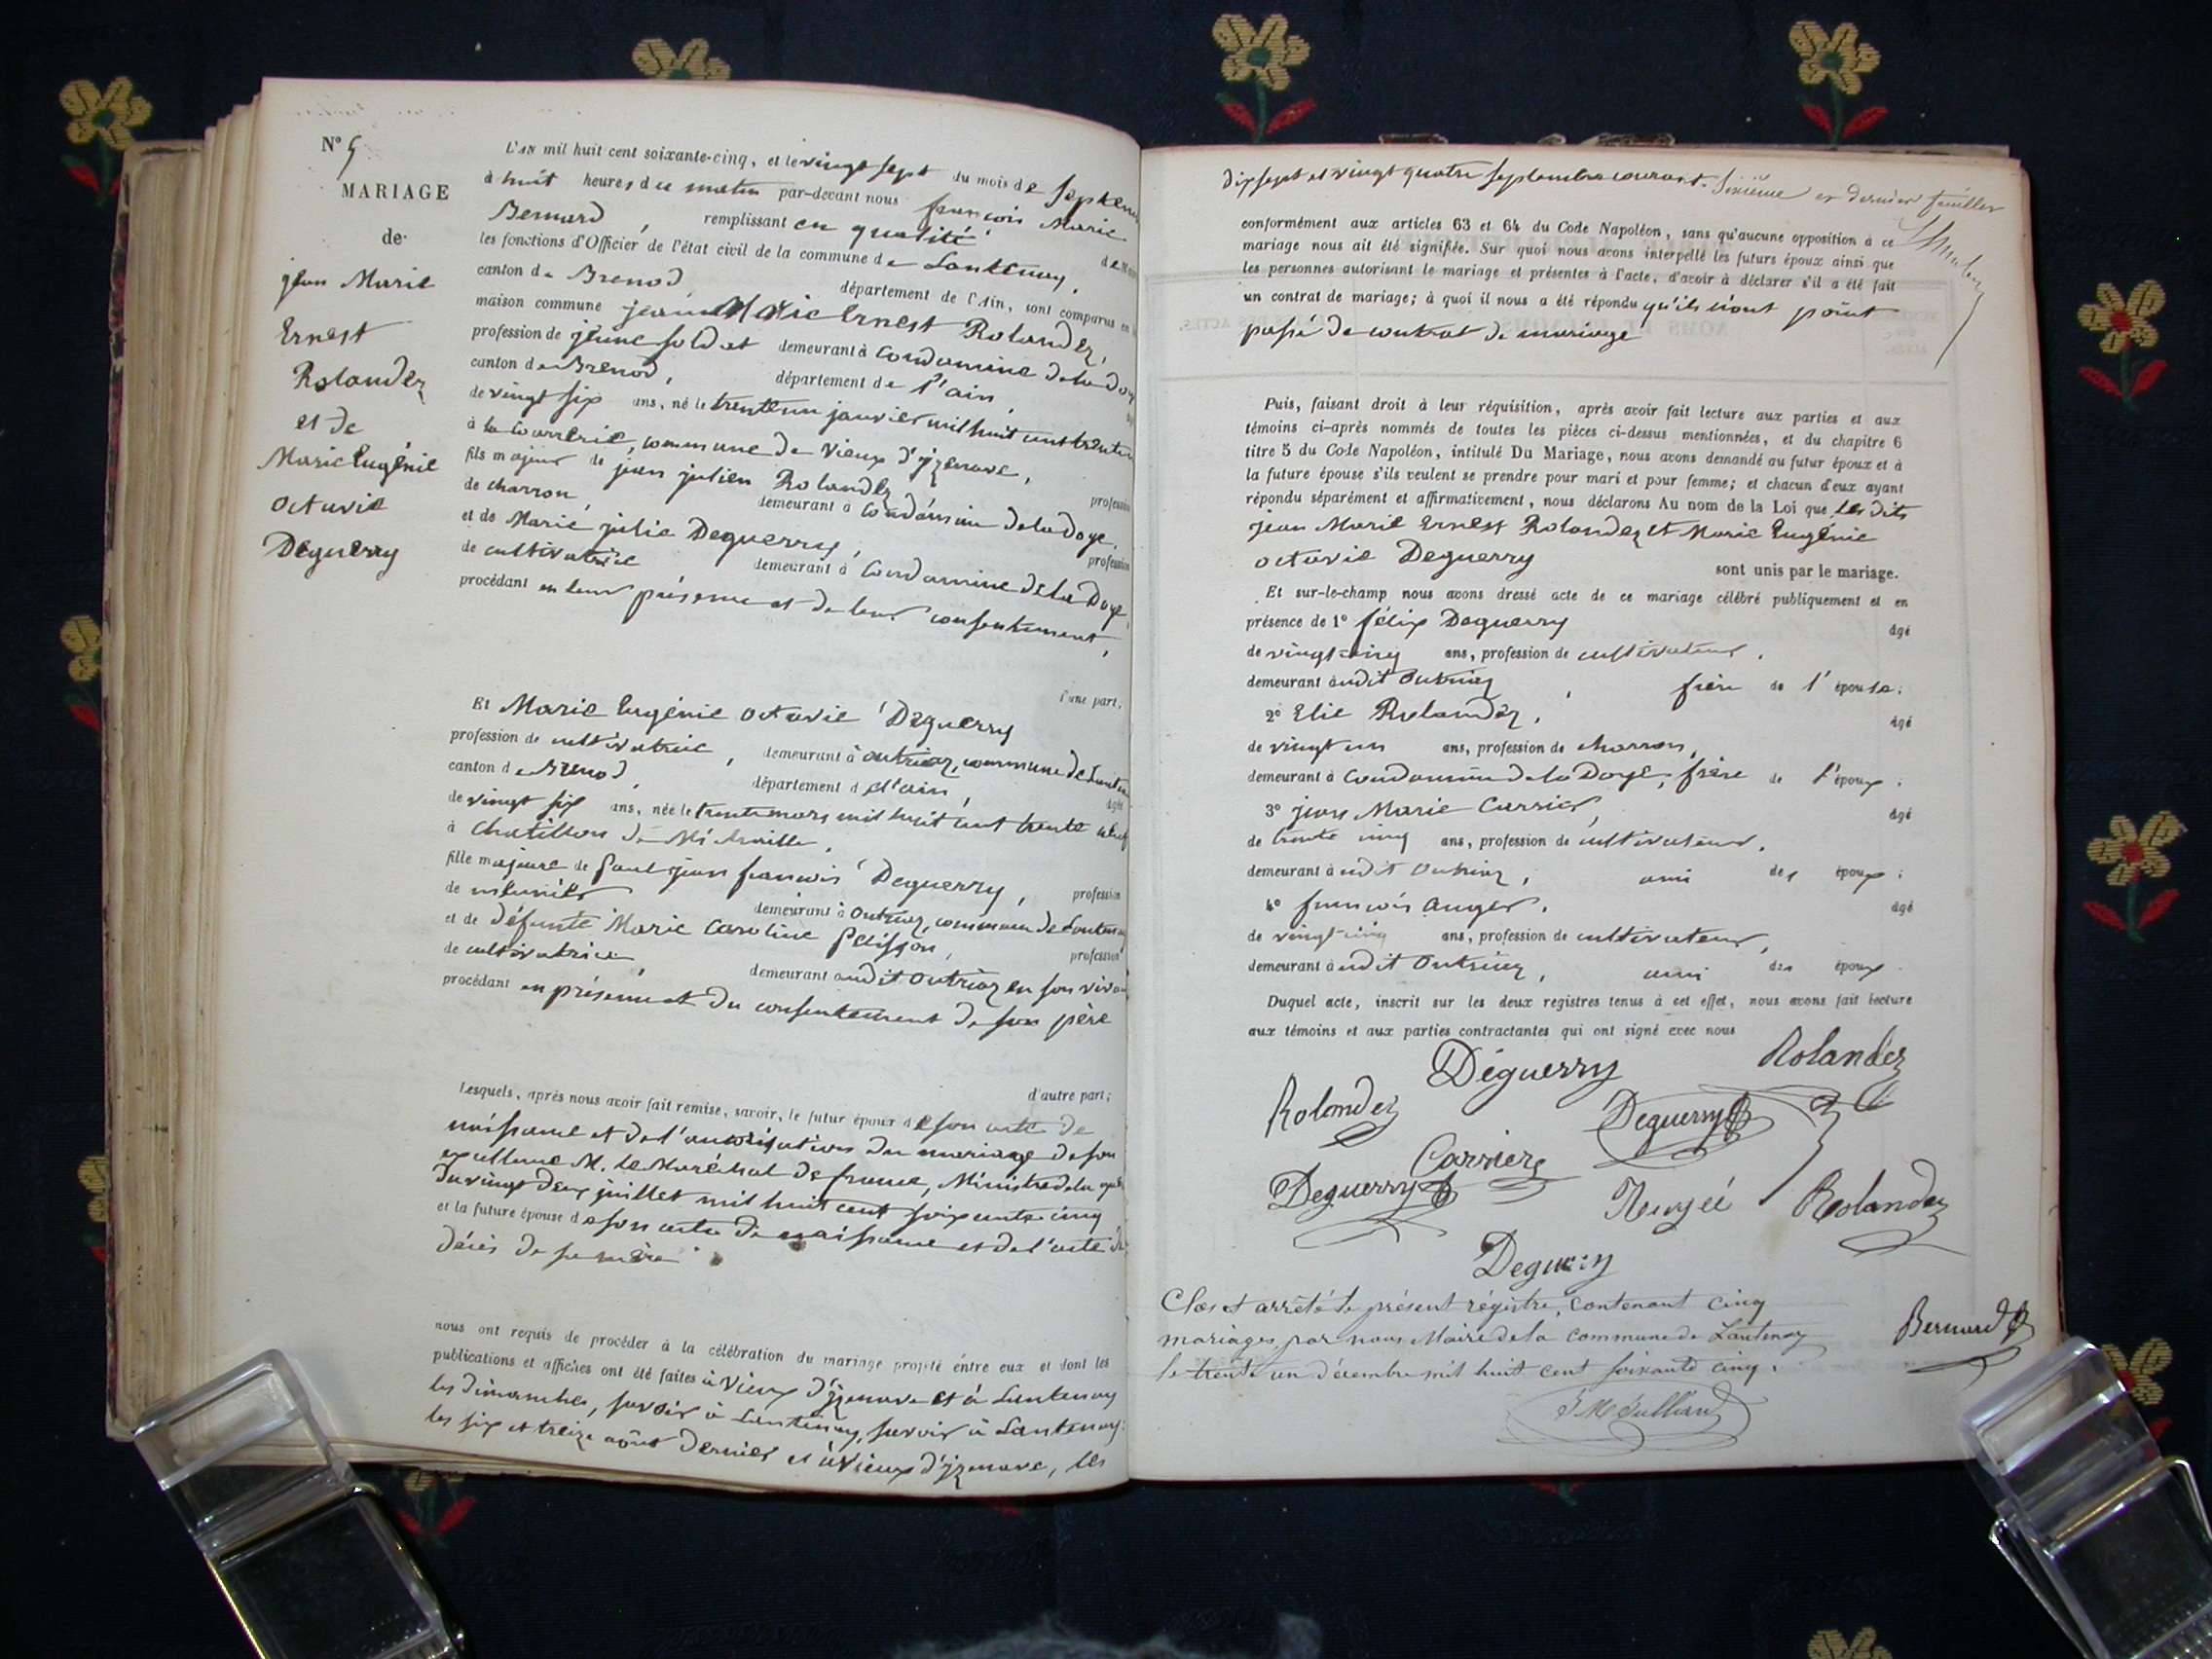 N° 5
MARIAGE
de
jean Marie
Ernest
Rolandez
et de
Marie Eugénie
octavie
Deguerry
L'AN mil huit cent soixante-cinq, et le vingt sept du mois de septem
à huit heures du matin par-devant nous françois Marie
Bernard, remplissant en qualité de
les fonctions d'Officier de l'état civil de la commune de Lantenay,
canton de Brenod département de l'Ain, sont comparus en
maison commune jean Marie Ernest Rolandez,
profession de jeune soldat demeurant à Condamine de la doy
canton de Brenod, département de l'ain,
de vingt six ans, né le trente un janvier mil huit cent trente
à la Courrerie, commune de Vieux d'yzenave,
fils majeur de jean julien Rolandez profession
de charron, demeurant à Condamine de la doye,
et de Marie julie Deguerry, profession
de cultivatrice demeurant à Condamine de la Doye,
procédant en leur présence et de leur consentement,
d'une part,
Et Marie Eugénie octavie Deguerry
profession de cultivatrice, demeurant à outriaz, commune de Lanten
canton de Brenod, département de l'ain,
de vingt six ans, née le trente mars mil huit cent trente neuf
à Chatillon de Michaille,
fille majeure de Paul jean francois Deguerry, profession
de meunier demeurant à Outriaz, commune de Lantenay
et de défunte Marie Caroline Pélisson, profession
de cultivatrice, demeurant audit Outriaz en son viva
procédant en présence et du consentement de son père
d'autre part;
Lesquels, après nous avoir fait remise, savoir, le futur époux de son acte de
naissance et de l'autorisation du mariage de son
excellence M. le Maréchal de france, Ministre de la
du vingt deux juillet mil huit cent soixante cinq
et la future épouse de son acte de naissance et de l'acte de
décès de sa mère
nous ont requis de procéder à la célébration du mariage projeté entre eux et dont les
publications et affiches ont été faites à Vieux d'yzenave et à Lantenay
les dimanches, savoir à Lantenay, savoir à Lantenay:
les six et treize août dernier et à Vieux d'yzenave, les
dix sept et vingt quatre septembre courant. Sixième et dernier feuillet
conformément aux articles 63 et 64 du Code Napoléon, sans qu'aucune opposition à ce
mariage nous ait été signifiée. Sur quoi nous avons interpellé les futurs époux ainsi que
les personnes autorisant le mariage et présentes à l'acte, d'avoir à déclarer s'il a été fait
un contrat de mariage; à quoi il nous a été répondu qu'ils n'ont point
passé de contrat de mariage
Puis, faisant droit à leur réquisition, après avoir fait lecture aux parties et aux
témoins ci-après nommés de toutes les pièces ci-dessus mentionnées, et du chapitre 6
titre 5 du Code Napoléon, intitulé Du Mariage, nous avons demandé au futur époux et à
la future épouse s'ils veulent se prendre pour mari et pour femme; et chacun d'eux ayant
répondu séparément et affirmativement, nous déclarons Au nom de la Loi que les dits
jean Marie Ernest Rolandez et Marie Eugénie
octavie Deguerry sont unis par le mariage.
Et sur-le-champ nous avons dressé acte de ce mariage célébré publiquement et en
présence de 1° félix Deguerry âgé
de vingt cinq ans, profession de cultivateur,
demeurant audit Outriaz, frère de l'épouse;
2° Elie Rolandez, âgé
de vingt un ans, profession de charron,
demeurant à Condamine de la Doye, frère de l'époux;
3° jean Marie Carrier, âgé
de trente cinq ans, profession de cultivateur,
demeurant audit Outriaz, ami des époux;
4° francois auger, âgé
de vingt cinq ans, profession de cultivateur,
demeurant audit Outriaz, ami des époux.
Duquel acte, inscrit sur les deux registres tenus à cet effet, nous avons fait lecture
aux témoins et aux parties contractantes qui ont signé avec nous
Déguerry Rolandez
Rolandez Deguerry
Carrier
Deguerry Rolandez
Deguerry
Clos et arrêté le présent régistre, contenant cinq
mariages par nous Maire de la commune de Lantenay
le trente un décembre mil huit cent soixante cinq.
Bernard
J M Julliard